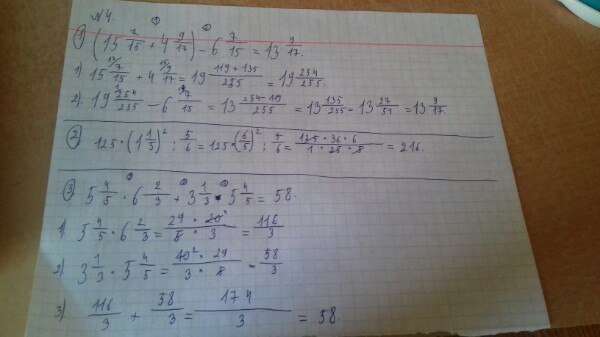 №4.
① (15 7/15 + 4 9/17) - 6 7/15 = 13 9/17.
1) 15 7/15 + 4 9/17 = 19 (119+135)/255 = 19 254/255.
2) 19 254/255 - 6 7/15 = 13 135/255 = 13 27/51 = 13 9/17
② 125 · (1 1/5)² : 5/6 = 125 · (6/5)² : 5/6 = (125 · 36 · 6)/(1 · 25 · 5) = 216.
③ 5 4/5 · 6 2/3 + 3 1/3 · 5 4/5 = 58.
1) 5 4/5 · 6 2/3 = (29 · 20)/(5 · 3) = 116/3
2) 3 1/3 · 5 4/5 = (10² · 29)/(3 · 5) = 58/3
3) 116/3 + 58/3 = 174/3 = 58.